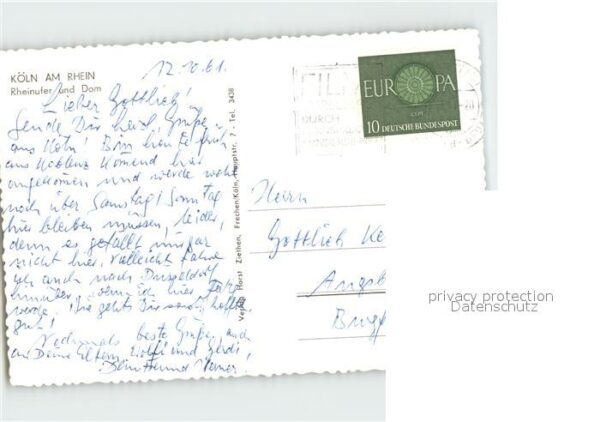 KÖLN AM RHEIN
Rheinufer und Dom
12.10.61.
Lieber Gottlieb!
Sende Dir herzl. Grüße
aus Köln! Bin heute früh
aus Koblenz komend hier
angekomen und werde wohl
noch über Samstag/Sonntag
hier bleiben müssen, leider,
denn es gefällt mir gar
nicht hier, vielleicht fahre
ich auch nach Düsseldorf
hinüber, wenn ich hier
werde. Wie geht's Dir
gut!
Nochmals beste Grüße auch
an Deine Eltern, und
Dein Freund Werner
Verlag Horst Ziethen, Frechen/Köln, Hauptstr. 7 - Tel. 3438
EUROPA
CEPT
10 DEUTSCHE BUNDESPOST
DURCH
Herrn
Gottlieb Ke
Augsb
privacy protection
Datenschutz